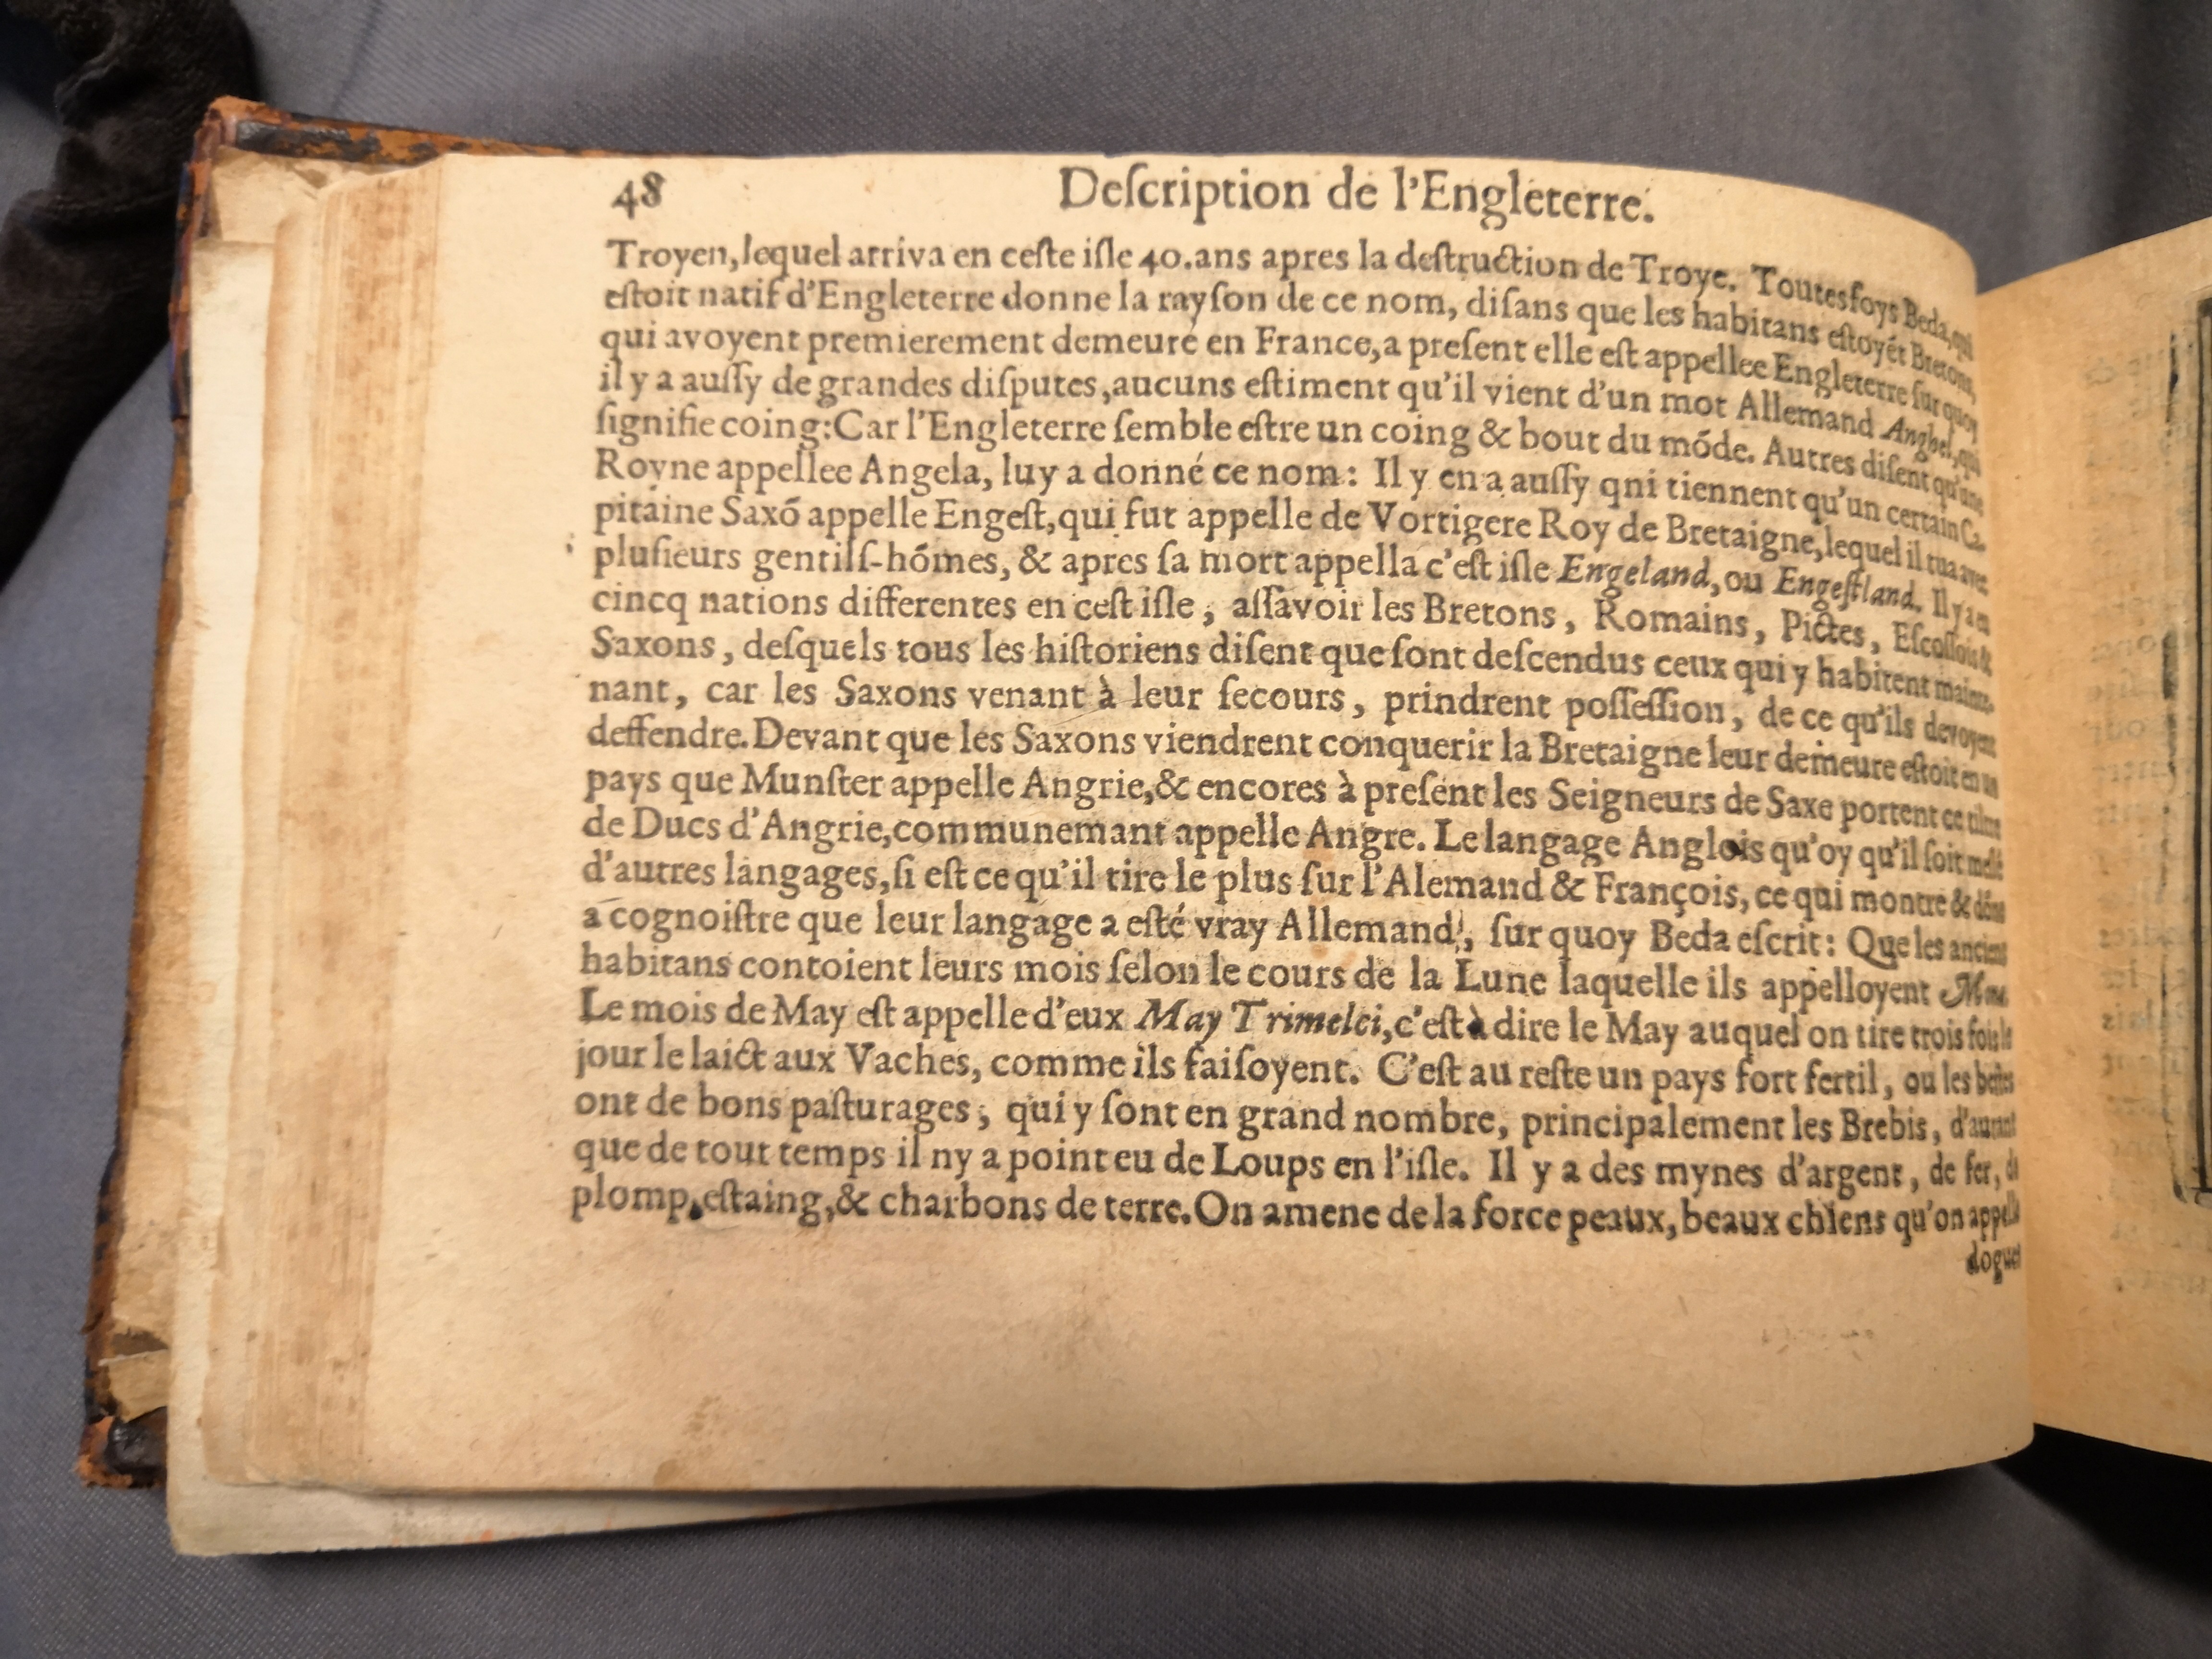 48 Deſcription de l'Engleterre.
Troyen, lequel arriva en ceſte iſle 40. ans apres la deſtruction de Troye. Toutesfoys Beda, qui
eſtoit natif d'Engleterre donne la rayſon de ce nom, diſans que les habitans eſtoyét Bretons,
qui avoyent premierement demeuré en France, a preſent elle eſt appellee Engleterre ſur quoy
il y a auſſy de grandes diſputes, aucuns eſtiment qu'il vient d'un mot Allemand Anghel, qui
ſignifie coing: Car l'Engleterre ſemble eſtre un coing & bout du móde. Autres diſent qu'une
Royne appellee Angela, luy a donné ce nom: Il y en a auſſy qni tiennent qu'un certain Ca-
pitaine Saxó appelle Engeſt, qui fut appelle de Vortigere Roy de Bretaigne, lequel il tua avec
pluſieurs gentilſ-hómes, & apres ſa mort appella c'eſt iſle Engeland, ou Engeſtland. Il y a eu
cincq nations differentes en ceſt iſle, aſſavoir les Bretons, Romains, Pictes, Eſcoſſois &
Saxons, deſquels tous les hiſtoriens diſent que ſont deſcendus ceux qui y habitent mainte-
nant, car les Saxons venant à leur ſecours, prindrent poſſeſſion, de ce qu'ils devoyent
deffendre. Devant que les Saxons viendrent conquerir la Bretaigne leur demeure eſtoit en un
pays que Munſter appelle Angrie, & encores à preſent les Seigneurs de Saxe portent ce
de Ducs d'Angrie, communemant appelle Angre. Le langage Anglois qu'oy qu'il ſoit meſlé
d'autres langages, ſi eſt ce qu'il tire le plus ſur l'Alemand & François, ce qui montre & dóne
a cognoiſtre que leur langage a eſté vray Allemand, ſur quoy Beda eſcrit: Que les anciens
habitans contoient leurs mois ſelon le cours de la Lune laquelle ils appelloyent
Le mois de May eſt appelle d'eux May Trimelci, c'eſt à dire le May auquel on tire trois fois le
jour le laict aux Vaches, comme ils faiſoyent. C'eſt au reſte un pays fort fertil, ou les beſtes
ont de bons paſturages, qui y ſont en grand nombre, principalement les Brebis, d'autant
que de tout temps il ny a point eu de Loups en l'iſle. Il y a des mynes d'argent, de fer, de
plomp, eſtaing, & charbons de terre. On amene de la force peaux, beaux chiens qu'on appelle
dogues